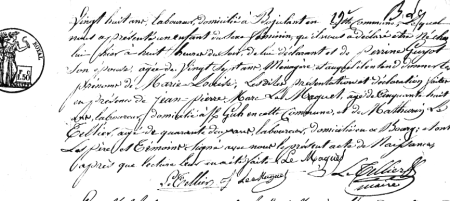 Vingt huit ans, laboureur, domicilié à en dite commune, lequel
nous a présenté un enfant du sexe féminin, qu'il nous a déclaré être né chez
lui hier à huit heures du soir, de lui déclarant et de Perrine
son épouse, âgée de Vingt sept ans, Ménagère, et auquel il entend donner le
prénom de Marie Louise, Lesdites présentation et déclaration faites
en présence de Jean pierre Marc Le Maguet, âgé de cinquante huit
ans, laboureur, domicilié au en cette Commune, et de Mathurin Le
Tellier, âgé de quarante ans laboureur, domicilié en ce Bourg; et ont
Les père et Témoins signé avec nous le présent acte de Naissance
après que lecture leur en a été faite. Le Maguet
Le Tellier Le Maguet Le Tellier
maire
ROYAL